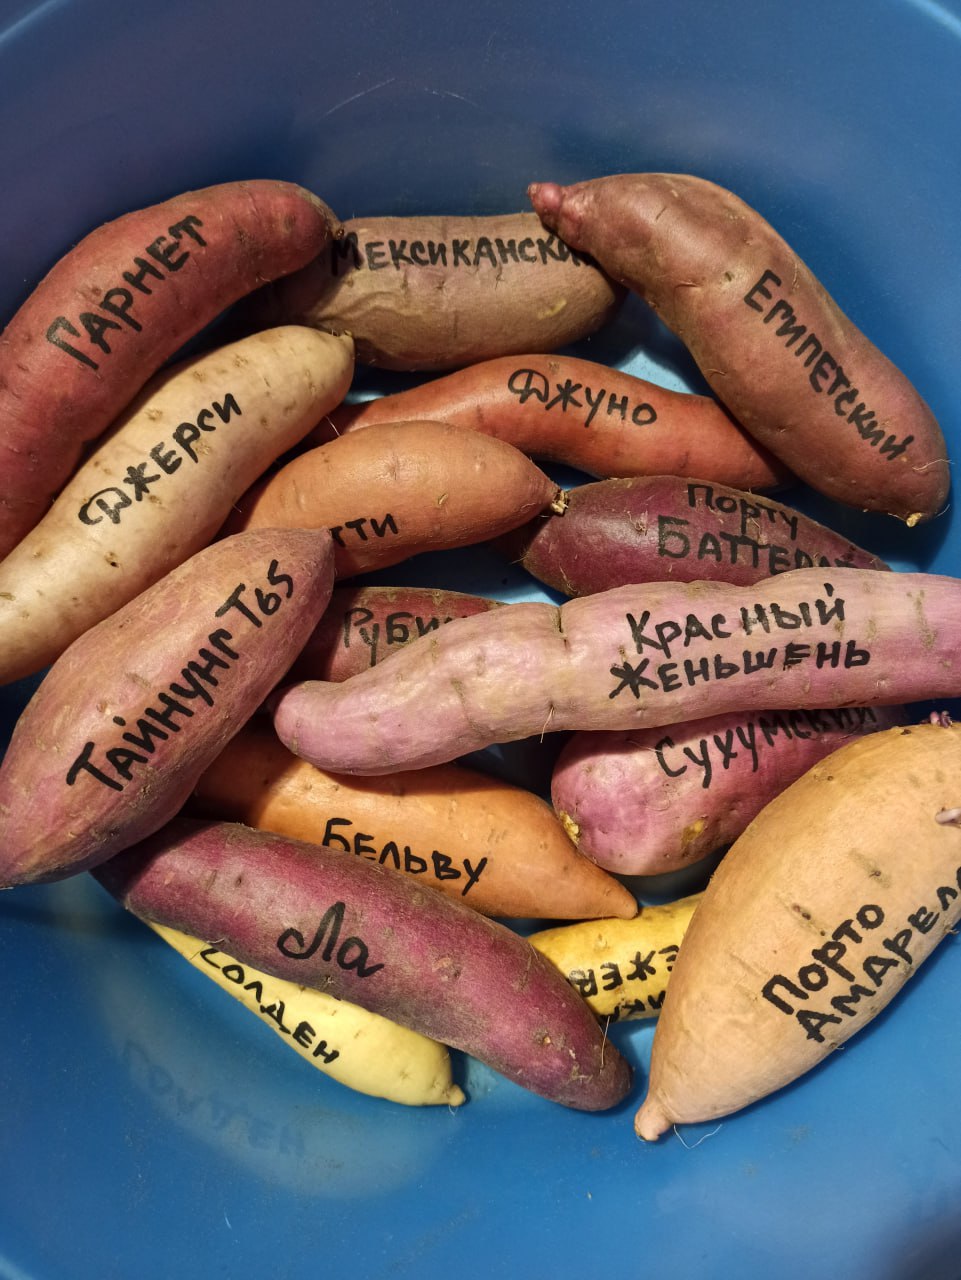 ГАРНЕТ
МЕКСИКАНСКИ
ЕГИПЕТСКИЙ
ДЖЕРСИ
ДЖУНО
ТТИ
ПОРТУ
БАТТЕРЛ
ТАЙНУНГ Т65
РУБИН
КРАСНЫЙ
ЖЕНЬШЕНЬ
СУХУМСКИЙ
БЕЛЬВУ
Ла
ПОРТО
АМАРЕЛО
ГОЛДЕН